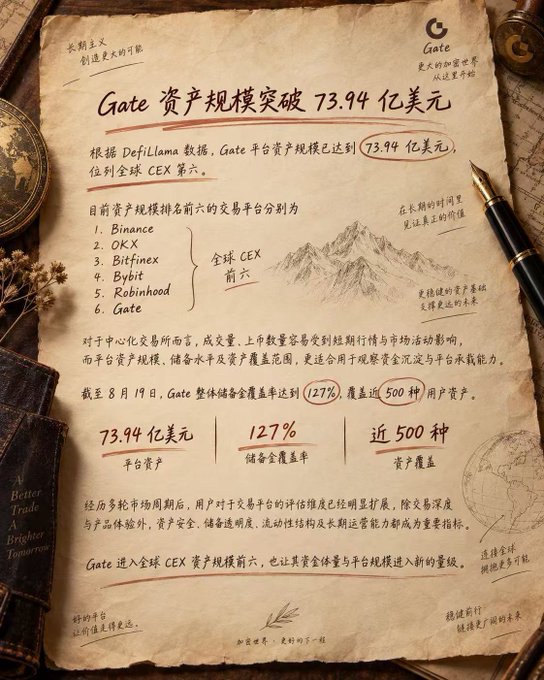 长期主义
创造更大的可能
Gate
更大的加密世界
从这里开始
Gate 资产规模突破 73.94 亿美元
根据 DefiLlama 数据，Gate 平台资产规模已达到 73.94 亿美元，
位列全球 CEX 第六。
目前资产规模排名前六的交易平台分别为
1. Binance
2. OKX
3. Bitfinex
4. Bybit
5. Robinhood
6. Gate
全球 CEX
前六
在长期的时间里
见证真正的价值
更稳健的资产基础
支撑更远的未来
对于中心化交易所而言，成交量、上币数量容易受到短期行情与市场活动影响，
而平台资产规模、储备水平及资产覆盖范围，更适合用于观察资金沉淀与平台承载能力。
截至 8 月 19 日，Gate 整体储备金覆盖率达到 127%，覆盖近 500 种 用户资产。
73.94 亿美元
平台资产
127%
储备金覆盖率
近 500 种
资产覆盖
A
Better
Trade
A
Brighter
Tomorrow
经历多轮市场周期后，用户对于交易平台的评估维度已经明显扩展，除交易深度
与产品体验外，资产安全、储备透明度、流动性结构及长期运营能力都成为重要指标。
Gate 进入全球 CEX 资产规模前六，也让其资金体量与平台规模进入新的量级。
连接全球
拥抱更多可能
好的平台
让价值走得更远。
加密世界 · 更好的下一程
稳健前行
链接更广阔的未来